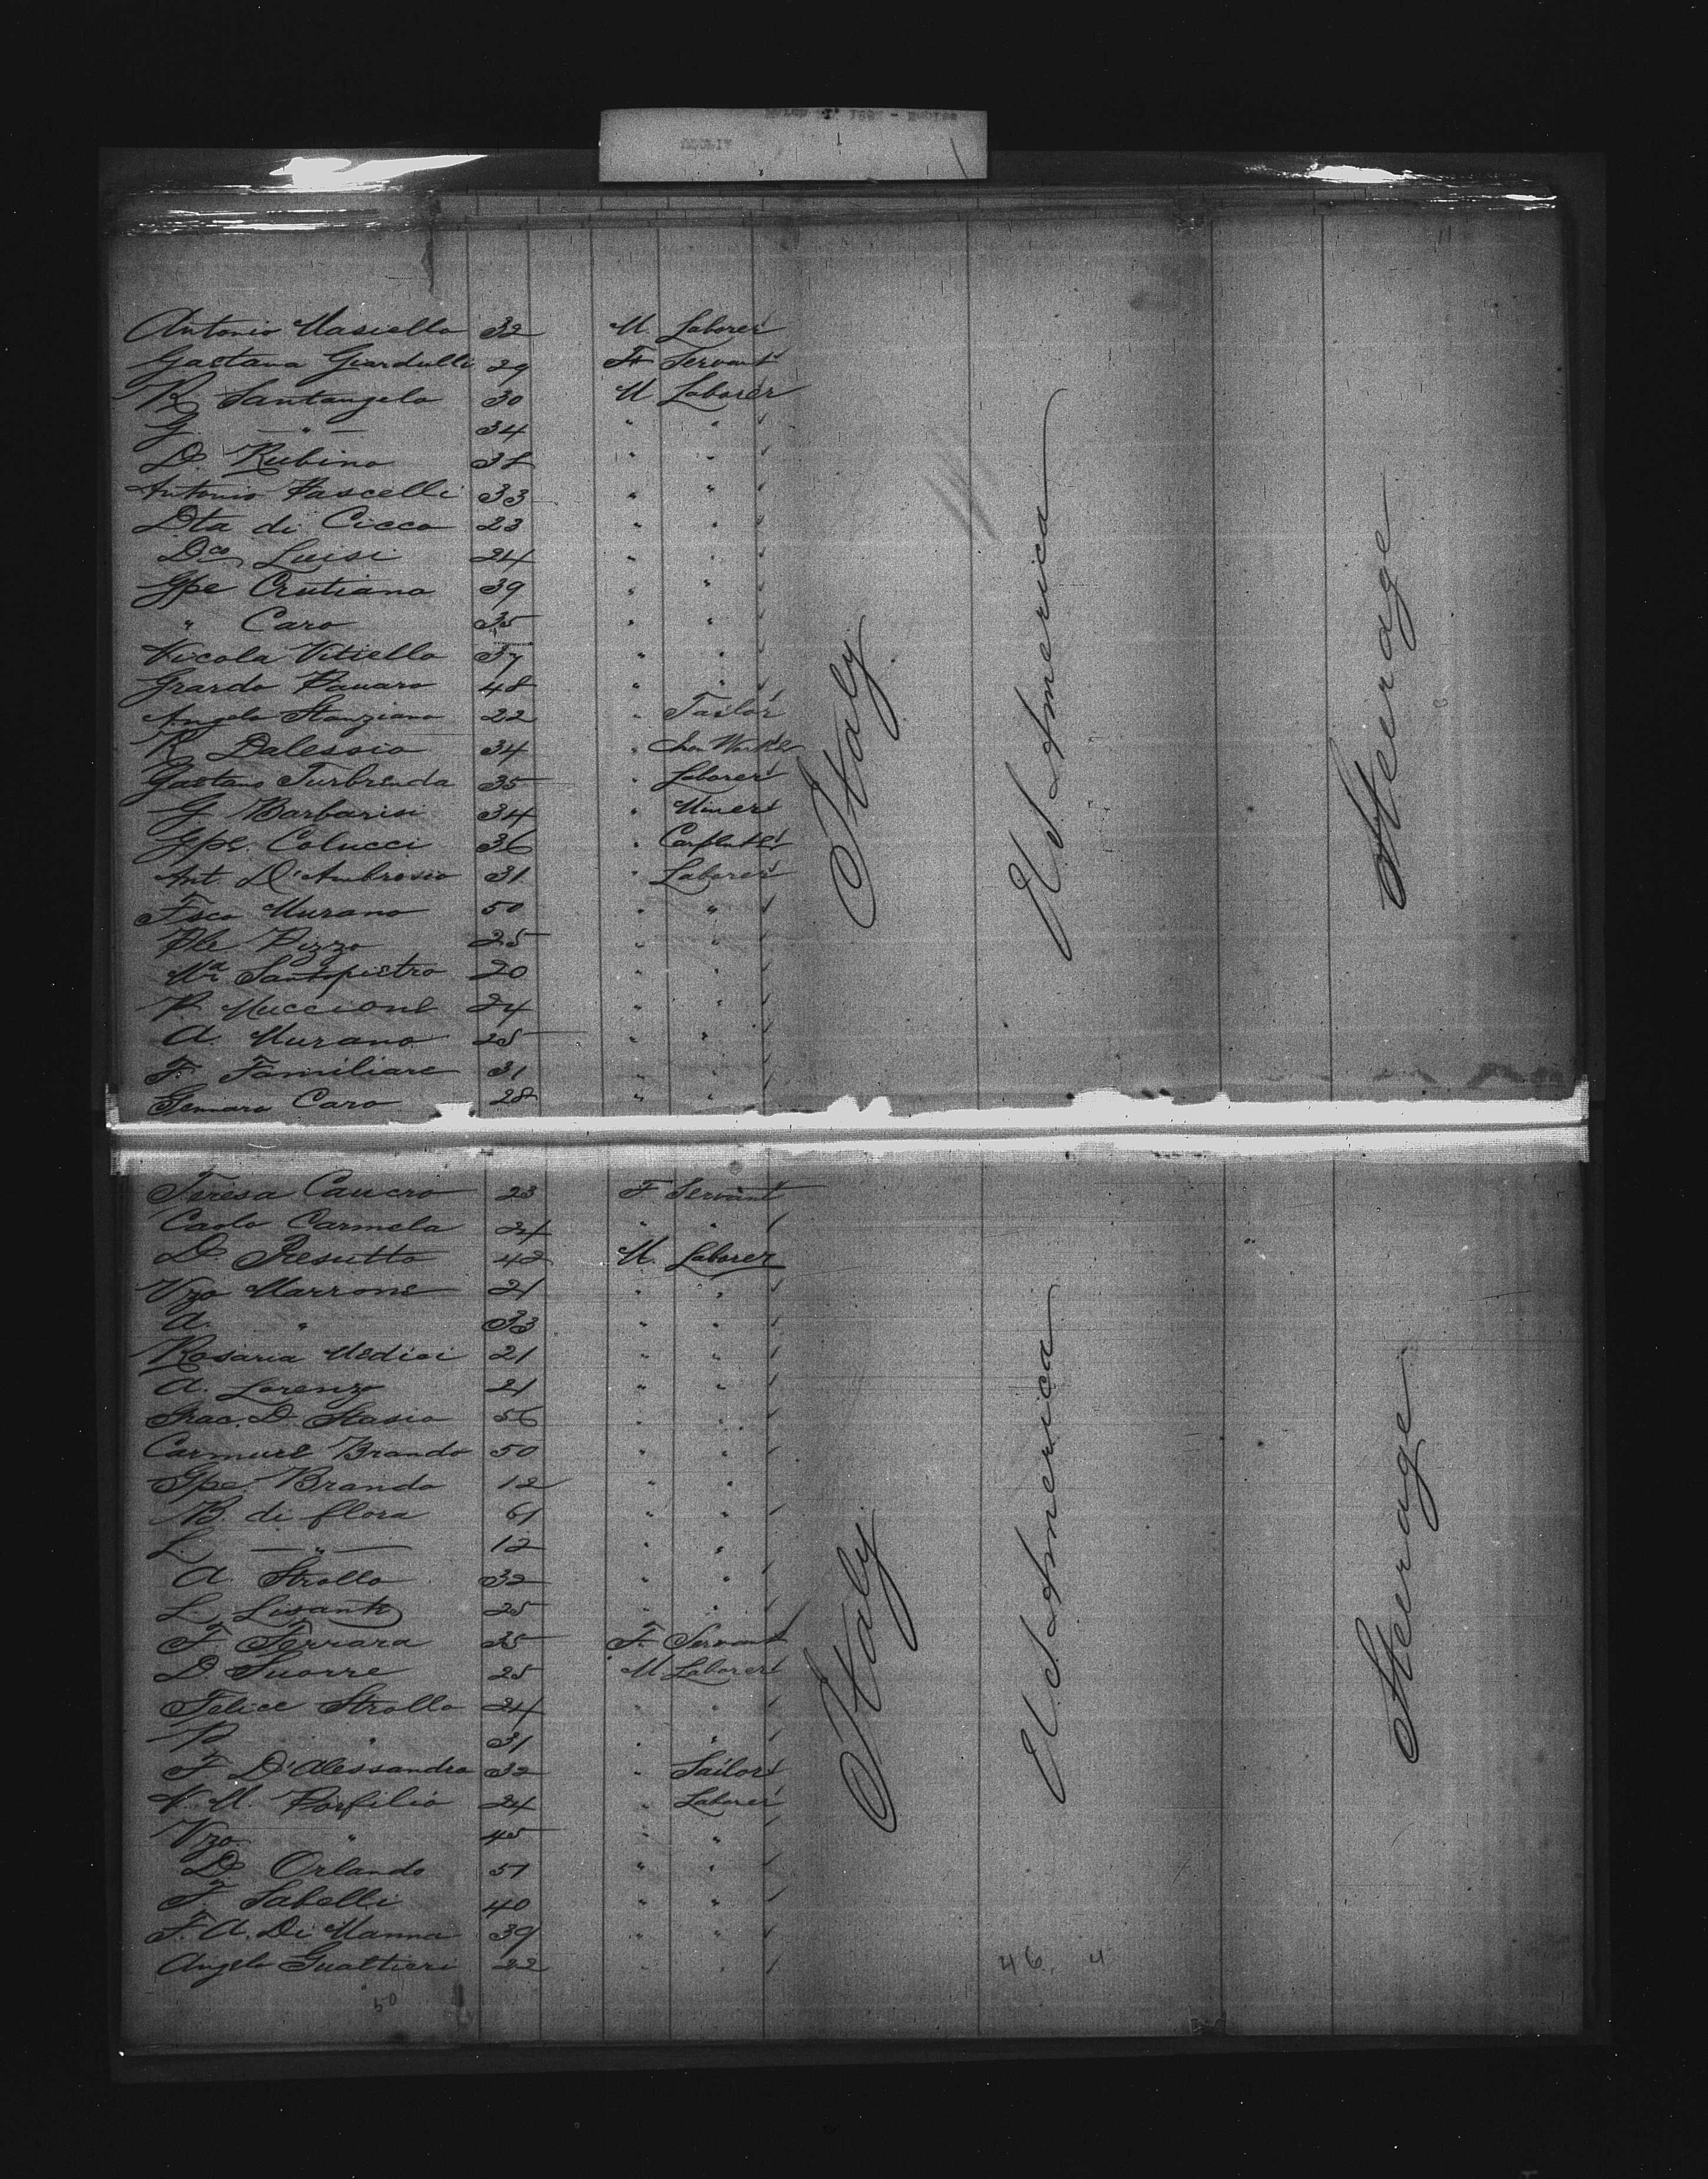 11
Antonio Masiello 32 M. Laborer
Gaetana Giardulli 29 F Servant
R Santangelo 30 M Laborer
G. — " — 34 " "
D. Rubino 38 " "
Antonio Pascelli 33 " "
Dta di Cicco 23 " "
Dco Luisi 24 " "
Gpe Crutiano 39 " "
" Caro 35 " "
Nicola Vitiello 37 " "
Grardo Panaro 48 " "
Angelo Stanziano 22 " Tailor
R. Dalessio 34 " Iron Worker
Gaetano Turbrenda 35 " Laborer
G Barbarisi 34 " Miner
Gpe. Colucci 36 " Carpenter
Ant. D'Ambrosio 31 " Laborer
Fsco Murano 50 " "
Ple Pizzo 25 " "
Ma Santopietro 20 " "
P. Muccione 24 " "
A. Murano 25 " "
F. Familiare 31 " "
Genaro Caro 28 " "
Italy
U.S. America
Steerage
Teresa Caucro 23 F Servant
Caolo Carmela 24 " "
D. Presutto 42 M. Laborer
Vzo Marrone 21 " "
A. " 33 " "
Rosaria Medici 21 " "
A. Lorenzo 21 " "
Grac. D. Stasio 56 " "
Carmine Brando 50 " "
Gpe. Brando 12 " "
B. di flora 61 " "
L — " — 12 " "
A. Strollo 32 " "
L. Lisanti 25 " "
F. Ferrara 35 F. Servant
D. Suorre 25 M Laborer
Felice Strollo 24 " "
P " 31 " "
F D'Alessandro 32 " Sailor
N. M. Porfilio 24 " Laborer
Vzo. " 45 " "
D. Orlando 51 " "
F. Sabelli 40 " "
F. A. Di Manna 39 " "
Angelo Gualtieri 22 " "
Italy
U.S. America
Steerage
50
46. 4